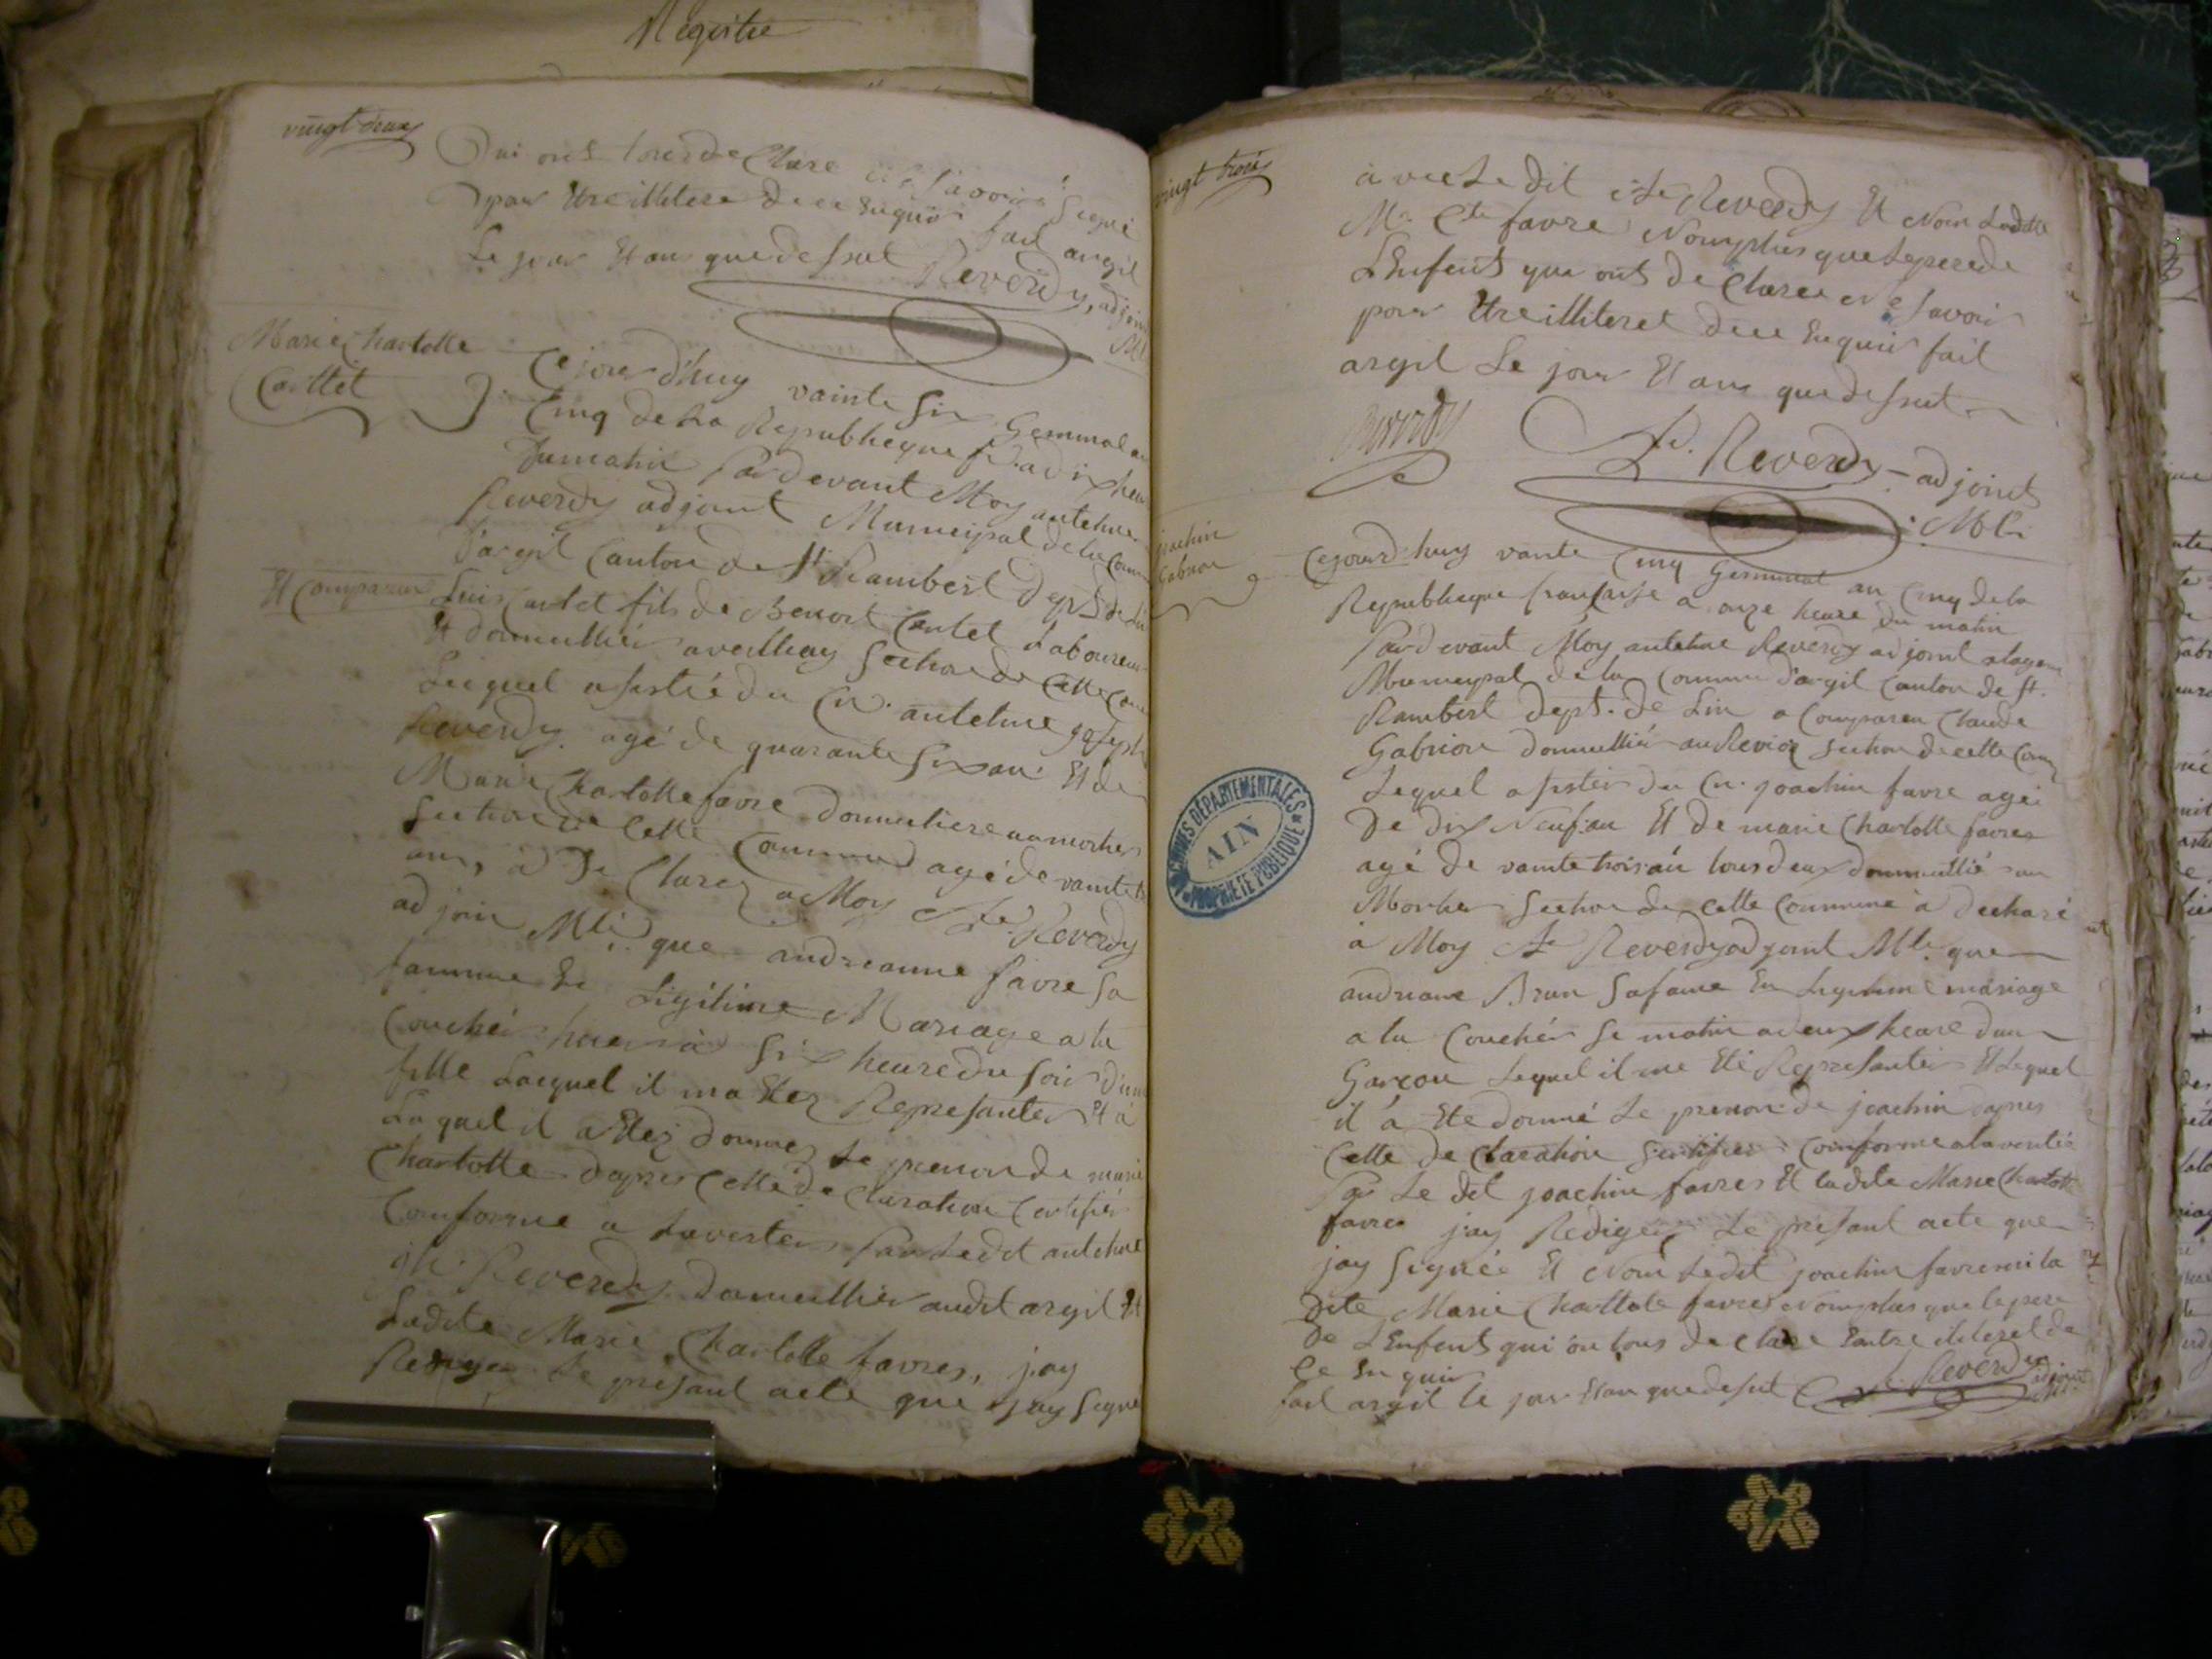 Registre
vingt deux
Qui ont tous de Clare ne savoir signé
pour Etre illitere de ce Enquis fait argil
Le jour Et an que dessut Reverdy, adjoin
Mal
Marie Charlotte
Carttet
Ce jourd'huy vainte six Germinal an
Cinq de La Republieque fr. a dix heur
du matin Pardevant Moy antelme
Reverdy adjoint Municipal de la Com
d'argil Canton de St Rambert Dept de L'in
Et Compareu Luis Cartet fils de Benoit Cartet Laboureur
Et domicillié averthay Section de Cette Com
Lequel assisté du Cn. antelme joseph
Reverdy agé de quarante six an Et de
Marie Charlotte favre domiciliere au morther
Section de Cette Commune agé de vainte t
ans, à De Clarez a Moy Ate Reverdy
adjoin Mli que andreanne favre sa
famme En Ligitime Mariage a lu
Couchéi hier à six heure du soir d'une
fille Laquel il ma Etez Represanter Et à
Laquel il a Etez Donnez Le prenon de marie
Charlotte dapres Cette de Claration Certifier
Comforme a Laverter Par Ledit antelme
jh. Reverdy Domicillier audit argil Et
Ladite Marie Charlotte favres, jay
Rediger Le presant acte que jay signé
vingt trois
avec Le dit Ate Reverdy Et Non Ladite
Mie Cte favre Nomplus que Le pere de
L'Enfent qui ont de Clarer ne savoir
pour Etre illiteret de ce Enquis fait
argil Le jour Et an que dessut
Reverdy
At. Reverdy adjoint
Mli
joachin
Gabrion
Cejourd'huy vante Cinq Germinal an Cinq de la
Republieque fransaisse a onze heure du matin
Pardevant Moy antelme Reverdy adjoint alagen
Municypal de la Commune d'argil Canton de St.
Rambert Dept. de Lin a Compareu Claude
Gabrion domicillié au Revion section de cette Com
Lequel assister du Cn. joachin favre agéi
De dix Neuf an Et de marie Charlotte favres
agé de vainte trois an tous deux domicillié au
Morther section de cette Commune à declaré
à Moy Ate Reverdy adjoint Mli que
andriane Brun sa fame En Legitime mariage
a lu Couchéi se matin a deux heure dun
Garcon Lequel il me Eté Represanter Et Lequel
il à Eté donné Le prenon de joachin dapres
Cette de Claration Certifier Comforme ala verité
Par Le dit joachin favres Et Ladite Marie Charlott
favres jay Rediger Le presant acte que
jay signéé Et Nom Ledit joachin favre ni la
dite Marie Charlotte favres Nomplus que le pere
De L'Enfent qui on tous de Clare Entre iliteret de
Ce En quis
fait argil le jour Et an que desut At. Reverdy adjoint
ARCHIVES DÉPARTEMENTALES
AIN
PROPRIÉTÉ PUBLIQUE